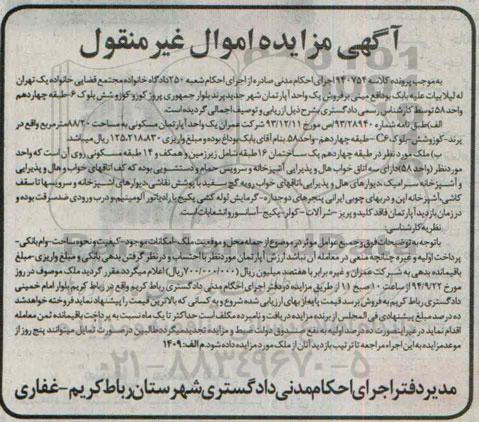 آگهی مزایده اموال غیر منقول
به موجب پرونده کلاسه ۹۴۰۷۵۴ اجرای احکام مدنی صادره از اجرای احکام شعبه ۲۵۰ دادگاه خانواده مجتمع قضایی خانواده یک تهران
له لیلا بیات علیه بابک بوداقع مبنی بر فروش یک واحد آپارتمان شهر جدید پرند بلوار جمهوری پروژه کوزو کوزوشش بلوک ۶ طبقه چهاردهم
واحد ۵۸ توسط کارشناس رسمی دادگستری بشرح ذیل ارزیابی و توصیف اجمالی گردیده است.
الف) طبق نامه شماره ۹۳/۲۸۹۴۰/ص مورخ ۹۳/۱۲/۱۱ شرکت عمران یک واحد آپارتمان مسکونی به مساحت ۸۸۷۰ مترمربع واقع در
پرند-کوزوشش-بلوک C۶-طبقه چهاردهم-واحد ۵۸ بنام آقای بابک بوداغ بوده و مبلغ واریزی ۱۲۵.۲۱۸۸۳۰ ریال میباشد
ب) ملک مورد نظر در طبقه چهاردهم یک ساختمان ۱۶ طبقه شامل زیرزمین و همکف و ۱۴ طبقه مسکونی روی آن است که واحد
مورد نظر (واحد ۵۸) دارای سه اتاق خواب هال و پذیرایی آشپزخانه و سرویس حمام و دستشویی بوده که کف اتاقهای خواب و هال و پذیرایی
و آشپزخانه سرامیک، دیوارهای هال و پذیرایی اتاقهای خواب رویه گچ سفید با پوشش نقاشی دیوارهای آشپزخانه و سرویسها تا سقف
کاشی، آشپزخانه اپن و دربهای چوبی ایرانی پنجرهای دوجداره-گرمایش لوله کشی پکیج با رادیاتور آلومینیم و درب ورودی ضد سرقت بوده و
در زمان بازدید آپارتمان فاقد کلید و پریز-شیرآلات-کولر-پکیج-آسانسور و انشعابات است.
نظریه کارشناسی:
باتوجه به توضیحات فوق و جمیع عوامل موثر در موضوع از جمله محل و موقعیت ملک-امکانات موجود-کیفیت و نحوه ساخت-وام بانکی-
پرداخت اولیه و غیره چنانچه منعی در معامله آن نباشد ارزش آپارتمان مورد نظر با احتساب و در نظر گرفتن بدهی بانکی و مبلغ واریزی-مبلغ
باقیمانده بدهی به شرکت عمران و غیره برابر با هفتصد میلیون ریال (۷۰۰/۰۰۰/۰۰۰ ریال) اعلام میگردد مقرر گردید ملک موصوف در روز
مورخ ۹۴/۹/۲۲ از ساعت ۱۰ صبح الی ۱۱ از طریق مزایده در دفتر اجرای احکام مدنی دادگستری رباط کریم واقع در رباط کریم بلوار امام خمینی
دادگستری رباط کریم به فروش برسد قیمت پایه از بهای ارزیابی شده شروع و به کسانی که بالاترین قیمت را پیشنهاد نماید فروخته خواهد شد
ده درصد مبلغ پیشنهادی فی المجلس از برنده مزایده دریافت و نامبرده مکلف است حداکثر تا یک ماه نسبت به پرداخت باقیمانده ثمن معامله
اقدام نماید در غیر اینصورت ده درصد اولیه به نفع صندوق دولت ضبط و مزایده تجدید میگردد طالبین در صورت تمایل میتوانند پنج روز از
موعد مزایده به این اجراء مراجعه تا ترتیب بازدید آنان از ملک مورد مزایده داده شود. م الف: ۱۴۰۹
مدیر دفتر اجرای احکام مدنی دادگستری شهرستان رباط کریم-غفاری
۰۲۱-۸۸۳۴۹۶۷۰-۵